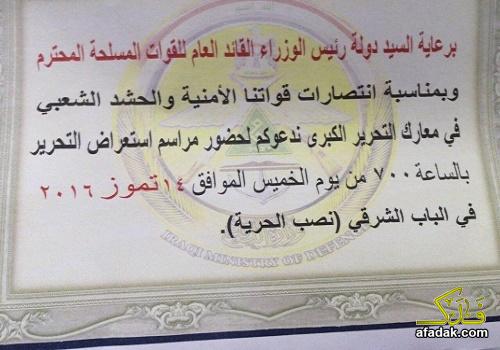 برعاية السيد دولة رئيس الوزراء القائد العام للقوات المسلحة المحترم
وبمناسبة انتصارات قواتنا الأمنية والحشد الشعبي
في معارك التحرير الكبرى ندعوكم لحضور مراسم استعراض التحرير
بالساعة ٧٠٠ من يوم الخميس الموافق ١٤ تموز ٢٠١٦
في الباب الشرقي (نصب الحرية).
IRAQI MINISTRY OF DEFEN
afadak.com